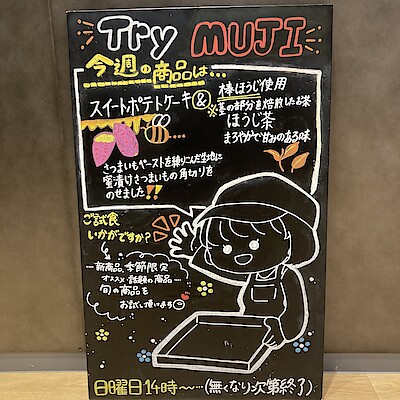 Try MUJI
今週の商品は…
スイートポテトケーキ &
棒ほうじ使用
※茎の部分を焙煎したお茶
ほうじ茶
まろやかで甘みのある味
さつまいもペーストを練りこんだ生地に
蜜漬けさつまいもの角切りを
のせました!!
ご試食
いかがですか?
…新商品、季節限定
オススメ・話題の商品…
旬の商品を
お試し頂けます
日曜日14時〜…(無くなり次第終了)